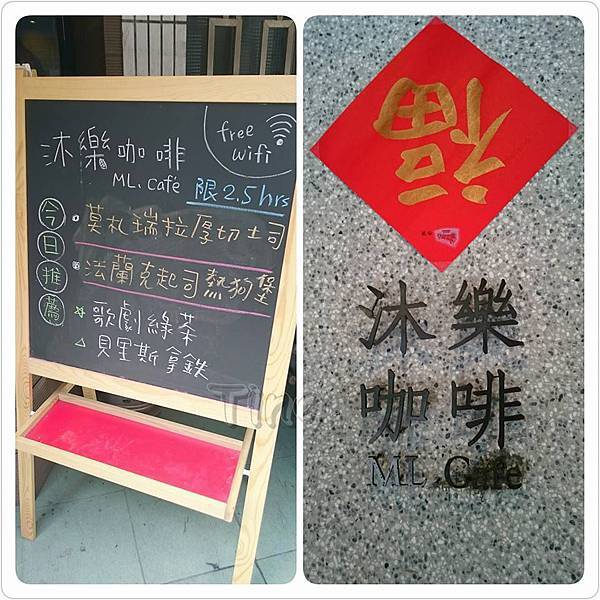 沐樂咖啡
free
wifi
ML. café
限2.5hrs
今日推薦
莫札瑞拉厚切土司
法蘭克起司熱狗堡
歌劇綠茶
貝里斯拿鐵
Tina
福
沐樂
咖啡
ML Cafe